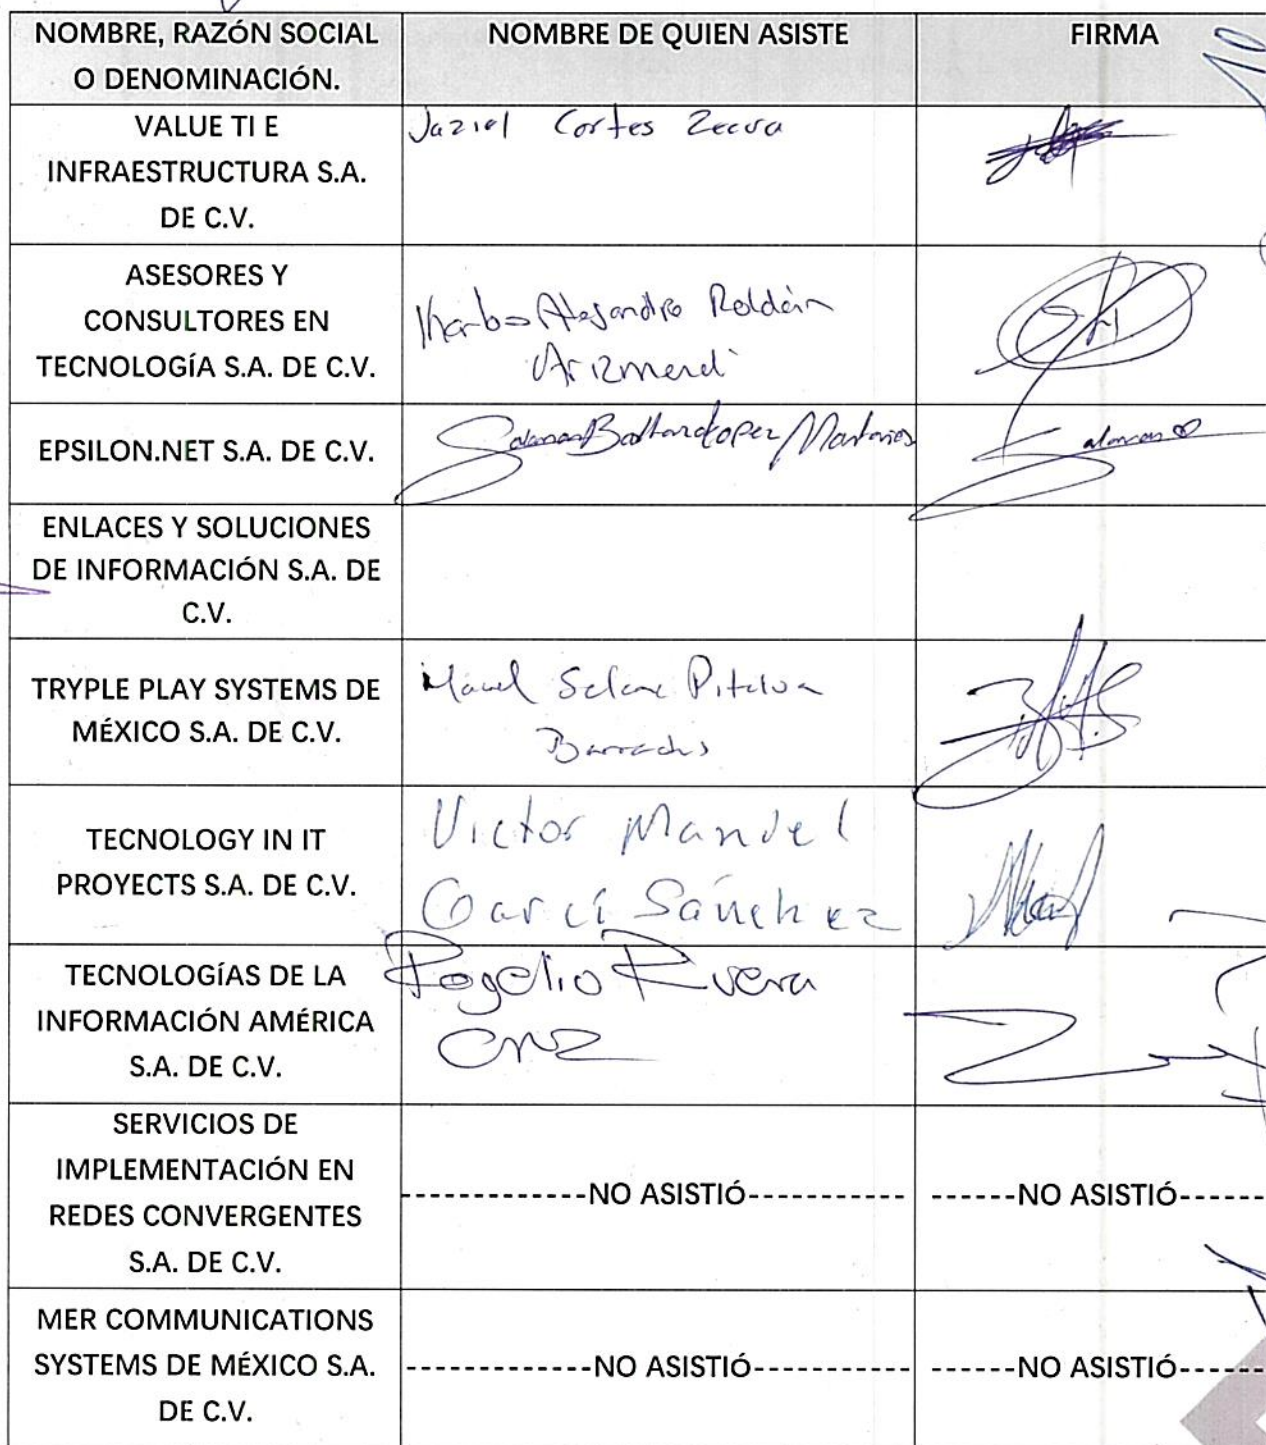 NOMBRE, RAZÓN SOCIAL
O DENOMINACIÓN.
NOMBRE DE QUIEN ASISTE
FIRMA
VALUE TI E
INFRAESTRUCTURA S.A.
DE C.V.
Jaziel Cortes
ASESORES Y
CONSULTORES EN
TECNOLOGÍA S.A. DE C.V.
Alejandro Roldán
Arizmendi
EPSILON.NET S.A. DE C.V.
ENLACES Y SOLUCIONES
DE INFORMACIÓN S.A. DE
C.V.
TRYPLE PLAY SYSTEMS DE
MÉXICO S.A. DE C.V.
TECNOLOGY IN IT
PROYECTS S.A. DE C.V.
Victor Manuel
Garcí Sánchez
TECNOLOGÍAS DE LA
INFORMACIÓN AMÉRICA
S.A. DE C.V.
Rogelio Rivera
Cruz
SERVICIOS DE
IMPLEMENTACIÓN EN
REDES CONVERGENTES
S.A. DE C.V.
-------------NO ASISTIÓ-----------
------NO ASISTIÓ------
MER COMMUNICATIONS
SYSTEMS DE MÉXICO S.A.
DE C.V.
-------------NO ASISTIÓ-----------
------NO ASISTIÓ------